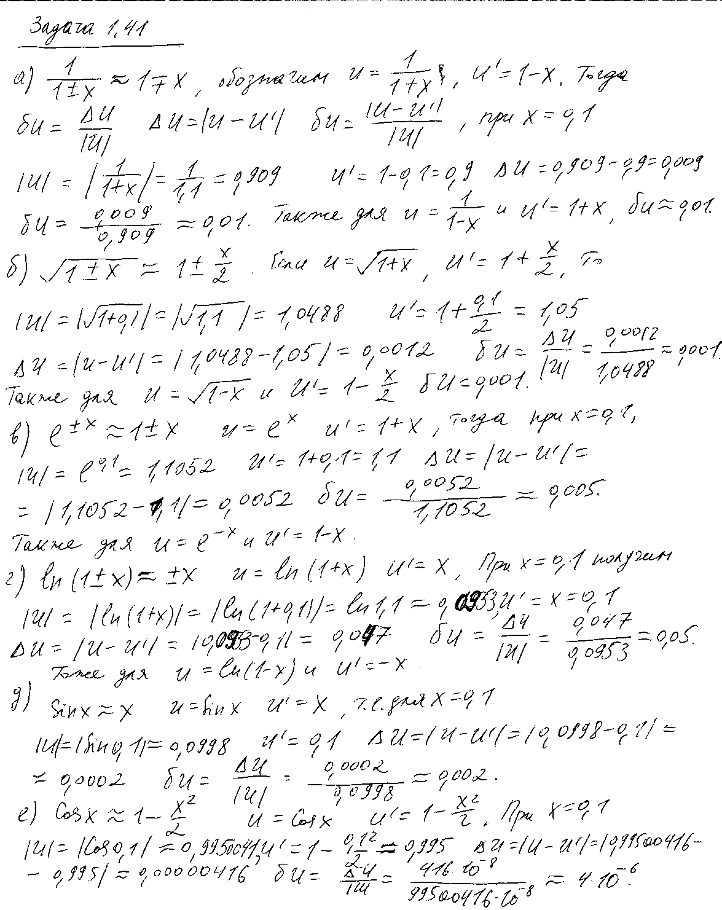 Задача 1,41
а) 1/(1±x) ≈ 1∓x, обозначим u = 1/(1+x), u' = 1-x. Тогда
δu = Δu/|u|   Δu = |u-u'|   δu = |u-u'|/|u|, при x = 0,1
|u| = |1/(1+x)| = 1/1,1 = 0,909   u' = 1-0,1 = 0,9   Δu = 0,909-0,9 = 0,009
δu = 0,009/0,909 ≈ 0,01. Также для u = 1/(1-x) и u' = 1+x, δu ≈ 0,01.
б) √(1±x) ≈ 1 ± x/2. Если u = √(1+x), u' = 1 + x/2, то
|u| = |√(1+0,1)| = |√1,1| = 1,0488   u' = 1 + 0,1/2 = 1,05
Δu = |u-u'| = |1,0488-1,05| = 0,0012   δu = Δu/|u| = 0,0012/1,0488 = 0,001.
Также для u = √(1-x) и u' = 1 - x/2 δu = 0,001.
в) e^(±x) ≈ 1±x   u = e^x   u' = 1+x, тогда при x = 0,1,
|u| = e^0,1 = 1,1052   u' = 1+0,1 = 1,1   Δu = |u-u'| =
= |1,1052-1,1| = 0,0052   δu = 0,0052/1,1052 ≈ 0,005.
Также для u = e^(-x) и u' = 1-x.
г) ln(1±x) ≈ ±x   u = ln(1+x)   u' = x, При x = 0,1 получим
|u| = |ln(1+x)| = |ln(1+0,1)| = ln1,1 = 0,0953, u' = x = 0,1
Δu = |u-u'| = |0,0953-0,1| = 0,047   δu = Δu/|u| = 0,047/0,0953 = 0,05.
Тоже для u = ln(1-x) и u' = -x
д) sinx ≈ x   u = sinx   u' = x, т.е. для x = 0,1
|u| = |sin0,1| = 0,0998   u' = 0,1   Δu = |u-u'| = |0,0998-0,1| =
≈ 0,0002   δu = Δu/|u| = 0,0002/0,0998 ≈ 0,002.
е) Cosx ≈ 1 - x²/2   u = Cosx   u' = 1 - x²/2. При x = 0,1
|u| = |Cos0,1| ≈ 0,9950041, u' = 1 - 0,1²/2 = 0,995   Δu = |u-u'| = |0,99500416-
- 0,995| ≈ 0,00000416   δu = Δu/|u| = 416·10⁻⁸/99500416·10⁻⁸ ≈ 4·10⁻⁶.